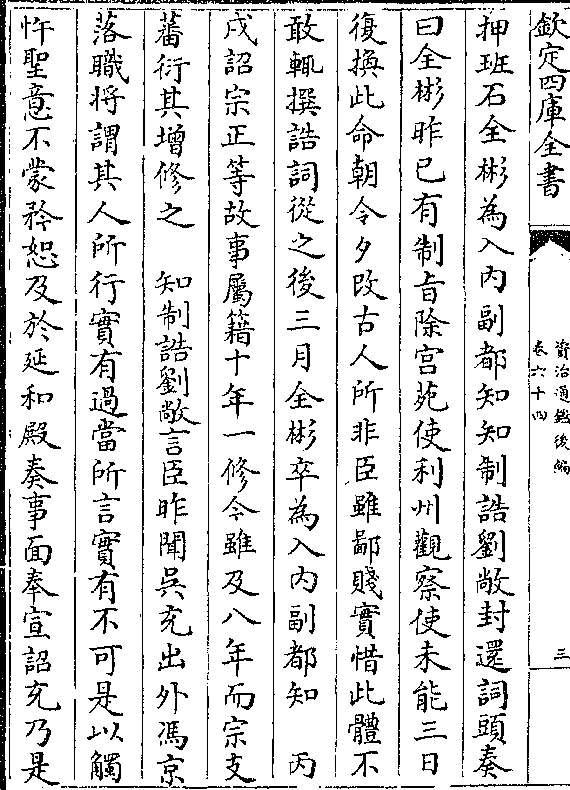 欽定四庫全書
資治通鑑後編
卷六十四
三
押班石全彬為入内副都知知制誥劉敞封還詞頭奏
曰全彬昨已有制旨除宫苑使利州觀察使未能三日
復換此命朝令夕改古人所非臣雖鄙賤實惜此體不
敢輒撰誥詞從之後三月全彬卒為入内副都知　丙
戌詔宗正等故事屬籍十年一修今雖及八年而宗支
蕃衍其增修之　知制誥劉敞言臣昨聞吳充出外馮京
落職將謂其人所行實有過當所言實有不可是以觸
忤聖意不蒙矜恕及於延和殿奏事面奉宣詔充乃是